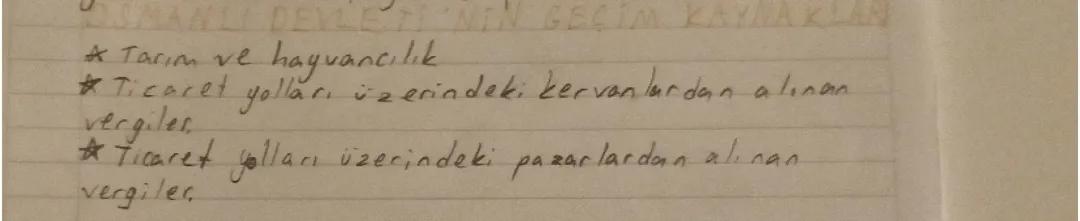 OSMANLI DEVLETİ'NİN GEÇİM KAYNAKLARI
☆ Tarım ve hayvancılık
☆ Ticaret yolları üzerindeki kervanlardan alınan
vergiler.
☆ Ticaret yolları üzerindeki pazarlardan alınan
vergiler.